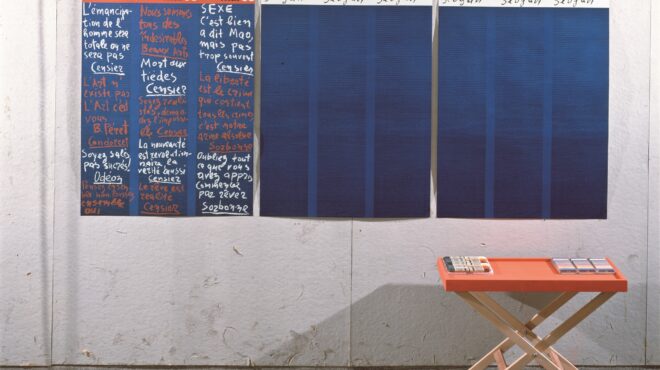 L'émancipa-
tion de l'
homme sera
totale ou ne
sera pas
Censier
L'Art n'
existe pas
L'Art c'est
vous
B. Péret
Condorcet
Soyez salés
pas sucrés!
Odéon
ensemble
OUI
Nous sommes
tous des
indésirables
Beaux Arts
Mort aux
tiedes
Censier
Soyez réalis
tes, deman-
dez l'impossi-
ble Censier
La nouveauté
est revolution-
naire, la
verité aussi
Censier
Le rêve est
réalité
Censier
SEXE
C'est bien
a dit Mao,
mais pas
trop souvent
Censier
La liberté
est le crime
qui contient
tous les crimes
c'est notre
arme absolue
Sorbonne
Oubliez tout
ce que vous
avez appris
Commencez
par rêvez
Sorbonne
Slogan Slogan Slogan
Slogan Slogan Slogan